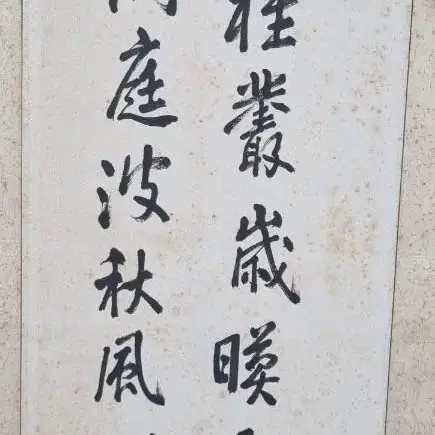 桂叢歲暎
庭波秋風